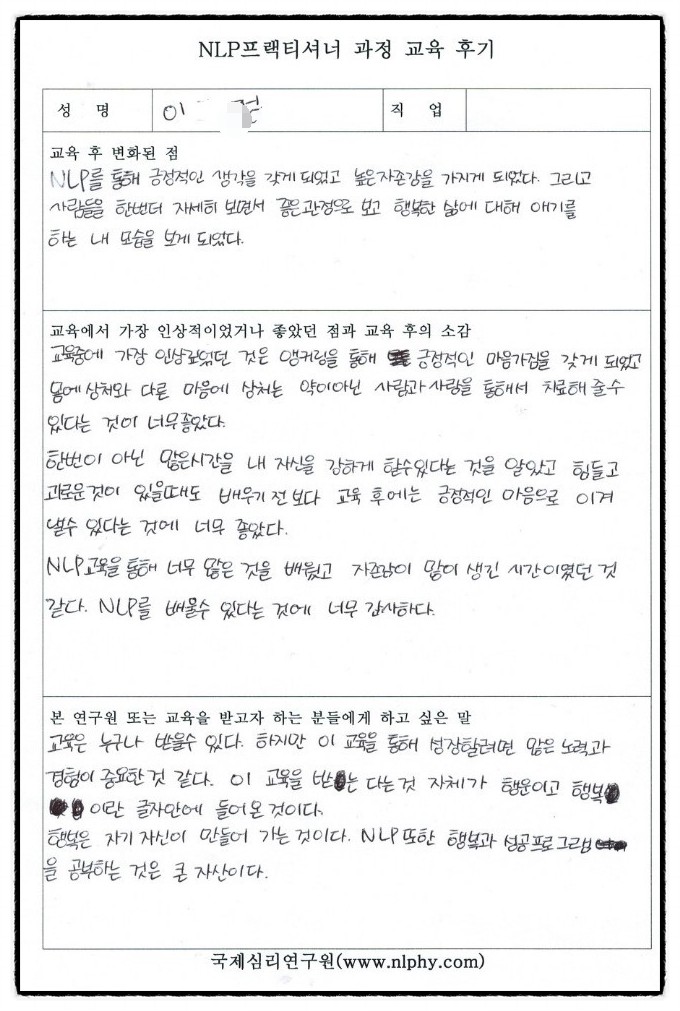 NLP프랙티셔너 과정 교육 후기
성 명 이 직 업
교육 후 변화된 점
NLP를 통해 긍정적인 생각을 갖게 되었고 높은자존감을 가지게 되었다. 그리고
사람들을 한번더 자세히 보면서 좋은관점으로 보고 행복한 삶에 대해 얘기를
하는 내 모습을 보게 되었다.
교육에서 가장 인상적이었거나 좋았던 점과 교육 후의 소감
교육중에 가장 인상깊었던 것은 앵커링을 통해 긍정적인 마음가짐을 갖게 되었고
몸에상처와 다른 마음에 상처는 약이아닌 사람과사랑을 통해서 치료해 줄수
있다는 것이 너무좋았다.
한번이 아닌 많은시간을 내 자신을 강하게 할수있다는 것을 알았고 힘들고
괴로운것이 있을때도 배우기 전 보다 교육 후에는 긍정적인 마음으로 이겨
낼수 있다는 것에 너무 좋았다.
NLP교육을 통해 너무 많은 것을 배웠고 자존감이 많이 생긴 시간이였던 것
같다. NLP를 배울수 있다는 것에 너무 감사하다.
본 연구원 또는 교육을 받고자 하는 분들에게 하고 싶은 말
교육은 누구나 받을수 있다. 하지만 이 교육을 통해 성장할려면 많은 노력과
경험이 중요한것 같다. 이 교육을 받는 다는것 자체가 행운이고 행복
이란 글자안에 들어온 것이다.
행복은 자기 자신이 만들어 가는것이다. NLP또한 행복과 성공프로그램
을 공부하는 것은 큰 자산이다.
국제심리연구원(www.nlphy.com)